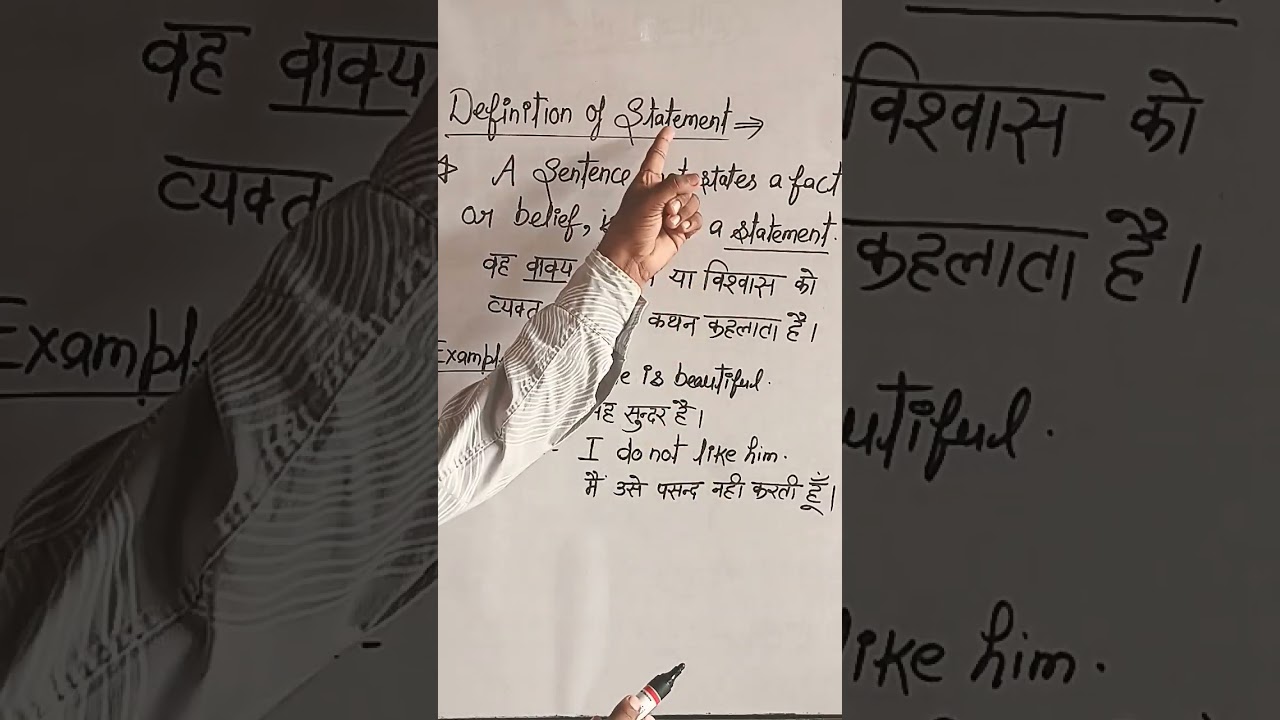 Definition of Statement ⇒
A Sentence states a fact
or belief, a statement.
वह वाक्य या विश्वास को
व्यक्त कथन कहलाता है।
is beautiful.
सुन्दर है।
- I do not like him.
मैं उसे पसन्द नही करती हूँ।